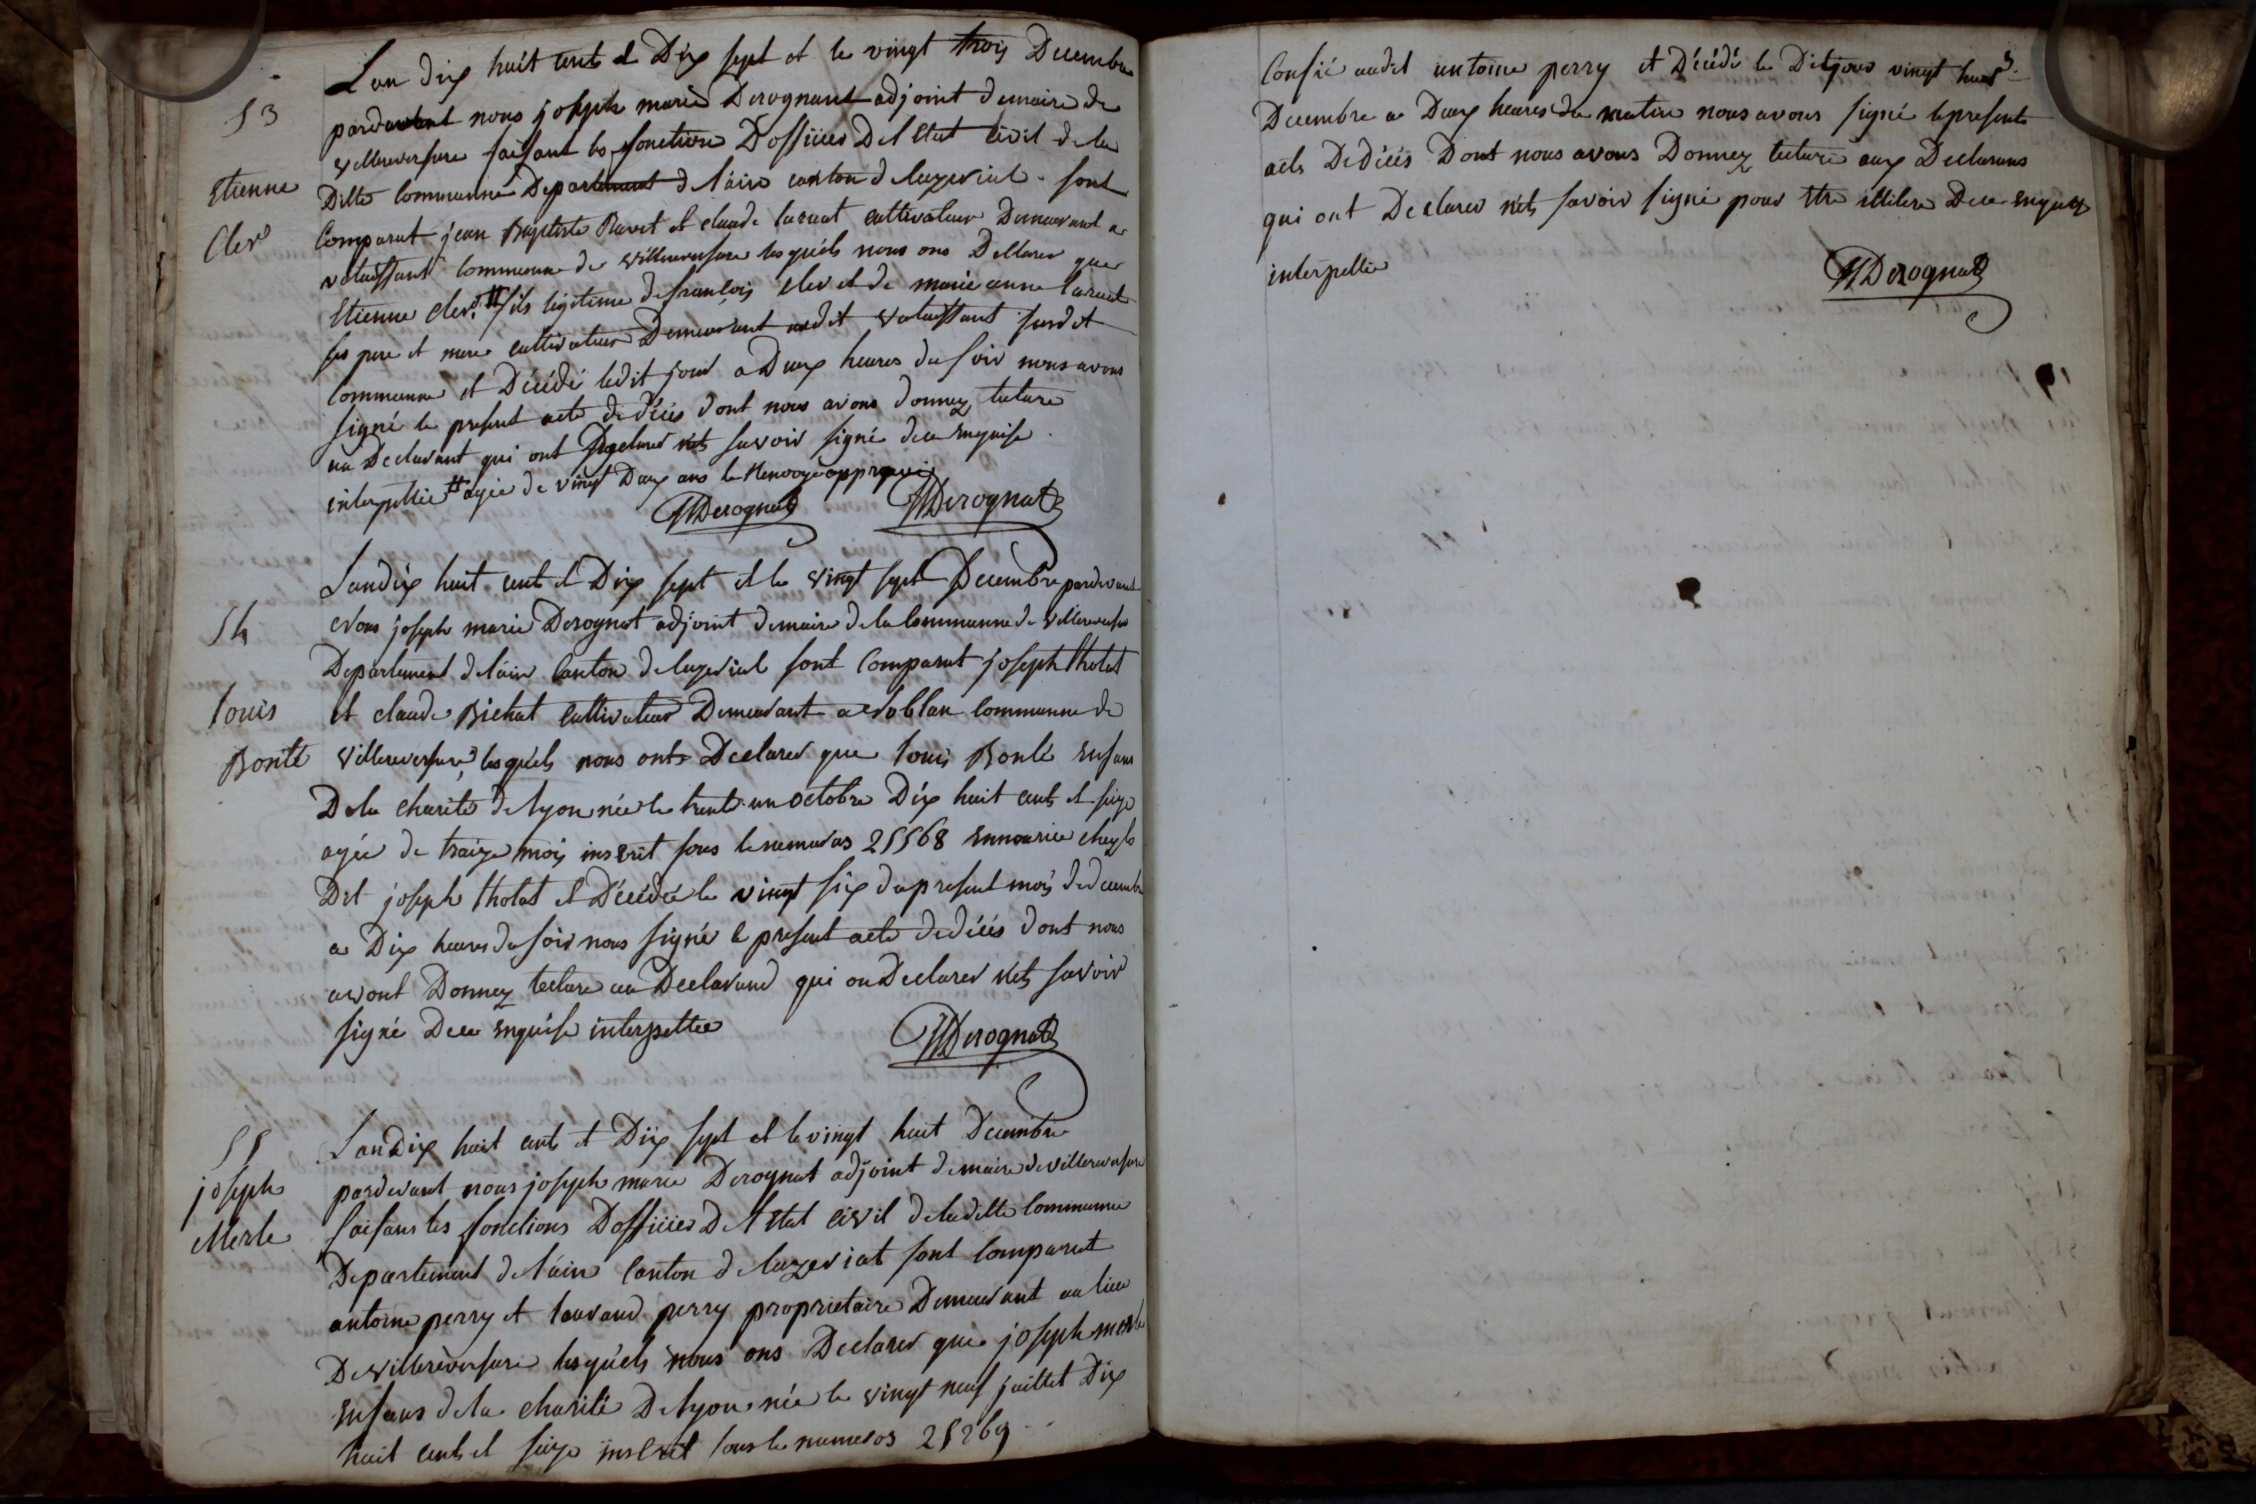 53
Etienne
Clerd
Lan dix huit cents et Dix sept et le vingt trois Decembre
pardevant nous joseph marie Derognant adjoint demaire de
villereversure faisant les fonctions D'officier De l'Etat civil de la
Ditte communne Departement de l'ain canton de ceyzeriat sont
Comparut jean Baptiste Ravet et claude laruat cultivateur Demeurant a
valuissant communne de villereversure lesquels nous ons Declarer que
Etienne Clerd # fils legitime de françois Clerd et de marie anne laruat
ses pere et mere cultivateur Demeurant audit valuissant susdit
communne et Décédé ledit jour a Deux heures du soir nous avons
signé le present acte de décés dont nous avons donnez lecture
au Declarant qui ont Declarer nets savoir signé dece enquise
interpellie # agée de vingt Deux ans le Renvoye approuvé
JMDerognat JMDerognat
54
Louis
Bonté
Landix huit cents et Dix sept et le vingt sept Decembre pardevant
Nous joseph marie Derognat adjoint demaire de la communne de villereversure
Departement de l'ain Canton de ceyzeriat sont Comparut joseph tholet
et claude Bichat cultivateur Demeurant a Noblan communne de
villereversure lesquels nous onts Declarer que louis Bonté Enfans
Dela charité de lyon née le trente un octobre Dix huit cents et seize
agée de traize mois inscrit sous le numeros 25568 ennourice chez le
Dit joseph tholet et Décédé le vingt six du present mois de decembre
a Dix heures du soir nous signé le present acte de décés dont nous
avont Donnez lecture au Declarand qui on Declarer nets savoir
signé Dece enquise interpellee
JMDerognat
55
joseph
Merle
LanDix huit cents et Dix sept et le vingt huit Decembre
pardevant nous joseph marie Derognat adjoint demaire de villereversure
faisans les fonctions D'officier De l'Etat civil de ladite communne
Departement de l'ain Canton de ceyzeriat sont Comparut
antoine perry et laurand perry proprietaire Demeurant au lieu
De villereversure lesquels nous ons Declarer que joseph merle
enfans de la charité De lyon née le vingt neuf juillet Dix
huit cents et seize inscrit sous le numeros 25269
Confié audit antoine perry et Décédé le Dit jour vingt huit
Decembre a Deux heures du matin nous avons signé le presente
acte Dedécés Dont nous avons Donnez lecture aux Declarans
qui ont Declarer nets savoir signé pour etre illitere Dece enquise
interpellie
JMDerognat